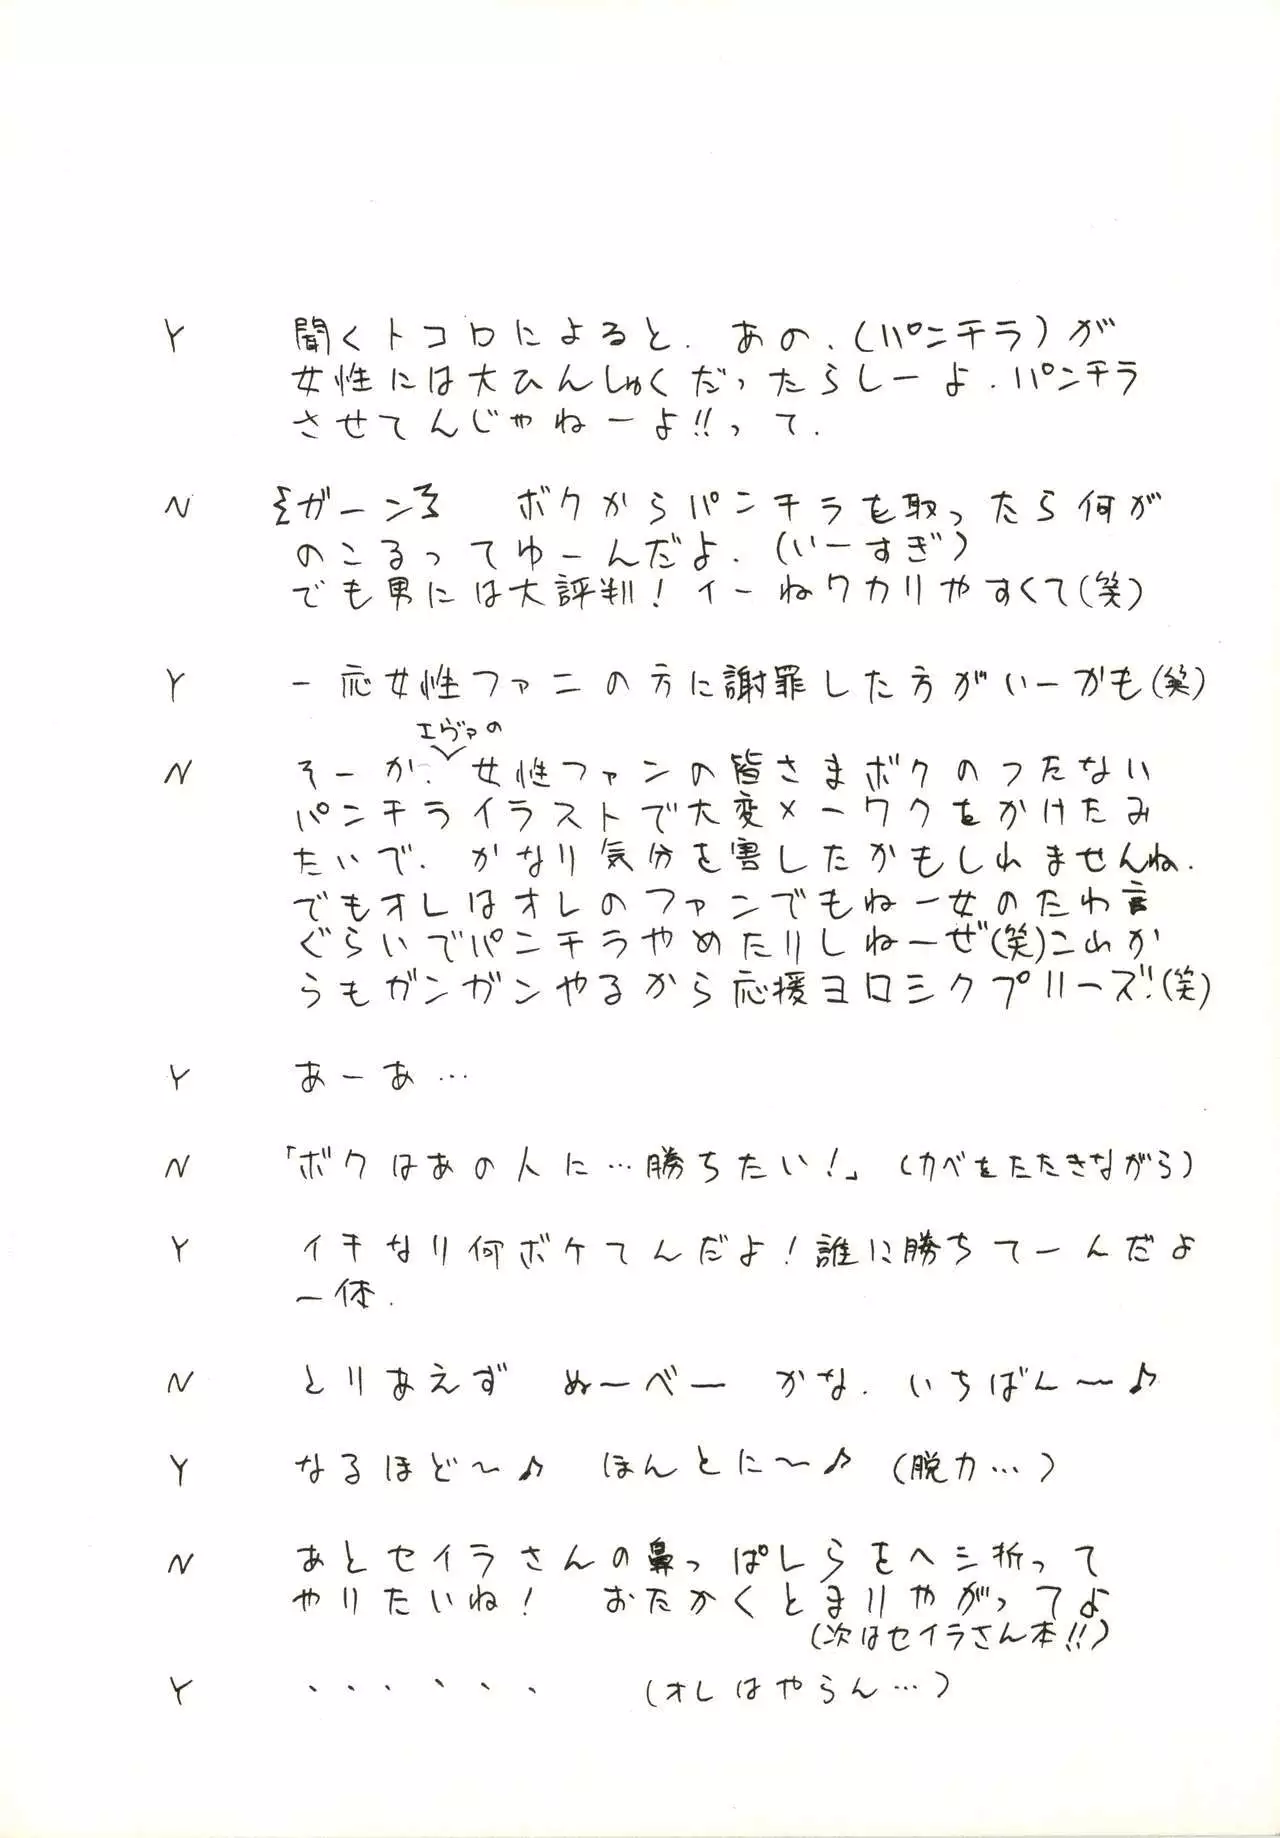 Y 聞くトコロによると、あの、(パンチラ)が
女性には大ひんしゅくだったらしーよ、パンチラ
させてんじゃねーよ!!って、
N ガーン ボクからパンチラを取ったら何が
のこるってゆーんだよ、(いーすぎ)
でも男には大評判!イーねワカリやすくて(笑)
Y 一応女性ファニの方に謝罪した方がいーかも(笑)
エヴァの
N そーか、女性ファンの皆さまボクのつたない
パンチライラストで大変メーワクをかけたみ
たいで、かなり気分を害したかもしれませんね、
でもオレはオレのファンでもねー女のたわ言
ぐらいでパンチラやめたりしねーぜ(笑)これか
らもガンガンやるから応援ヨロシクプリーズ!(笑)
Y あーあ…
N 「ボクはあの人に…勝ちたい!」(カベをたたきながら)
Y イキなり何ボケてんだよ!誰に勝ちてーんだよ
一体、
N とりあえず ぬ〜べ〜 かな、いちばん〜♪
Y なるほど〜♪ ほんとに〜♪ (脱力…)
N あとセイラさんの鼻っぱしらをヘシ折って
やりたいね! おたかくとまりやがってよ
(次はセイラさん本!!)
Y ・・・・・・ (オレはやらん…)